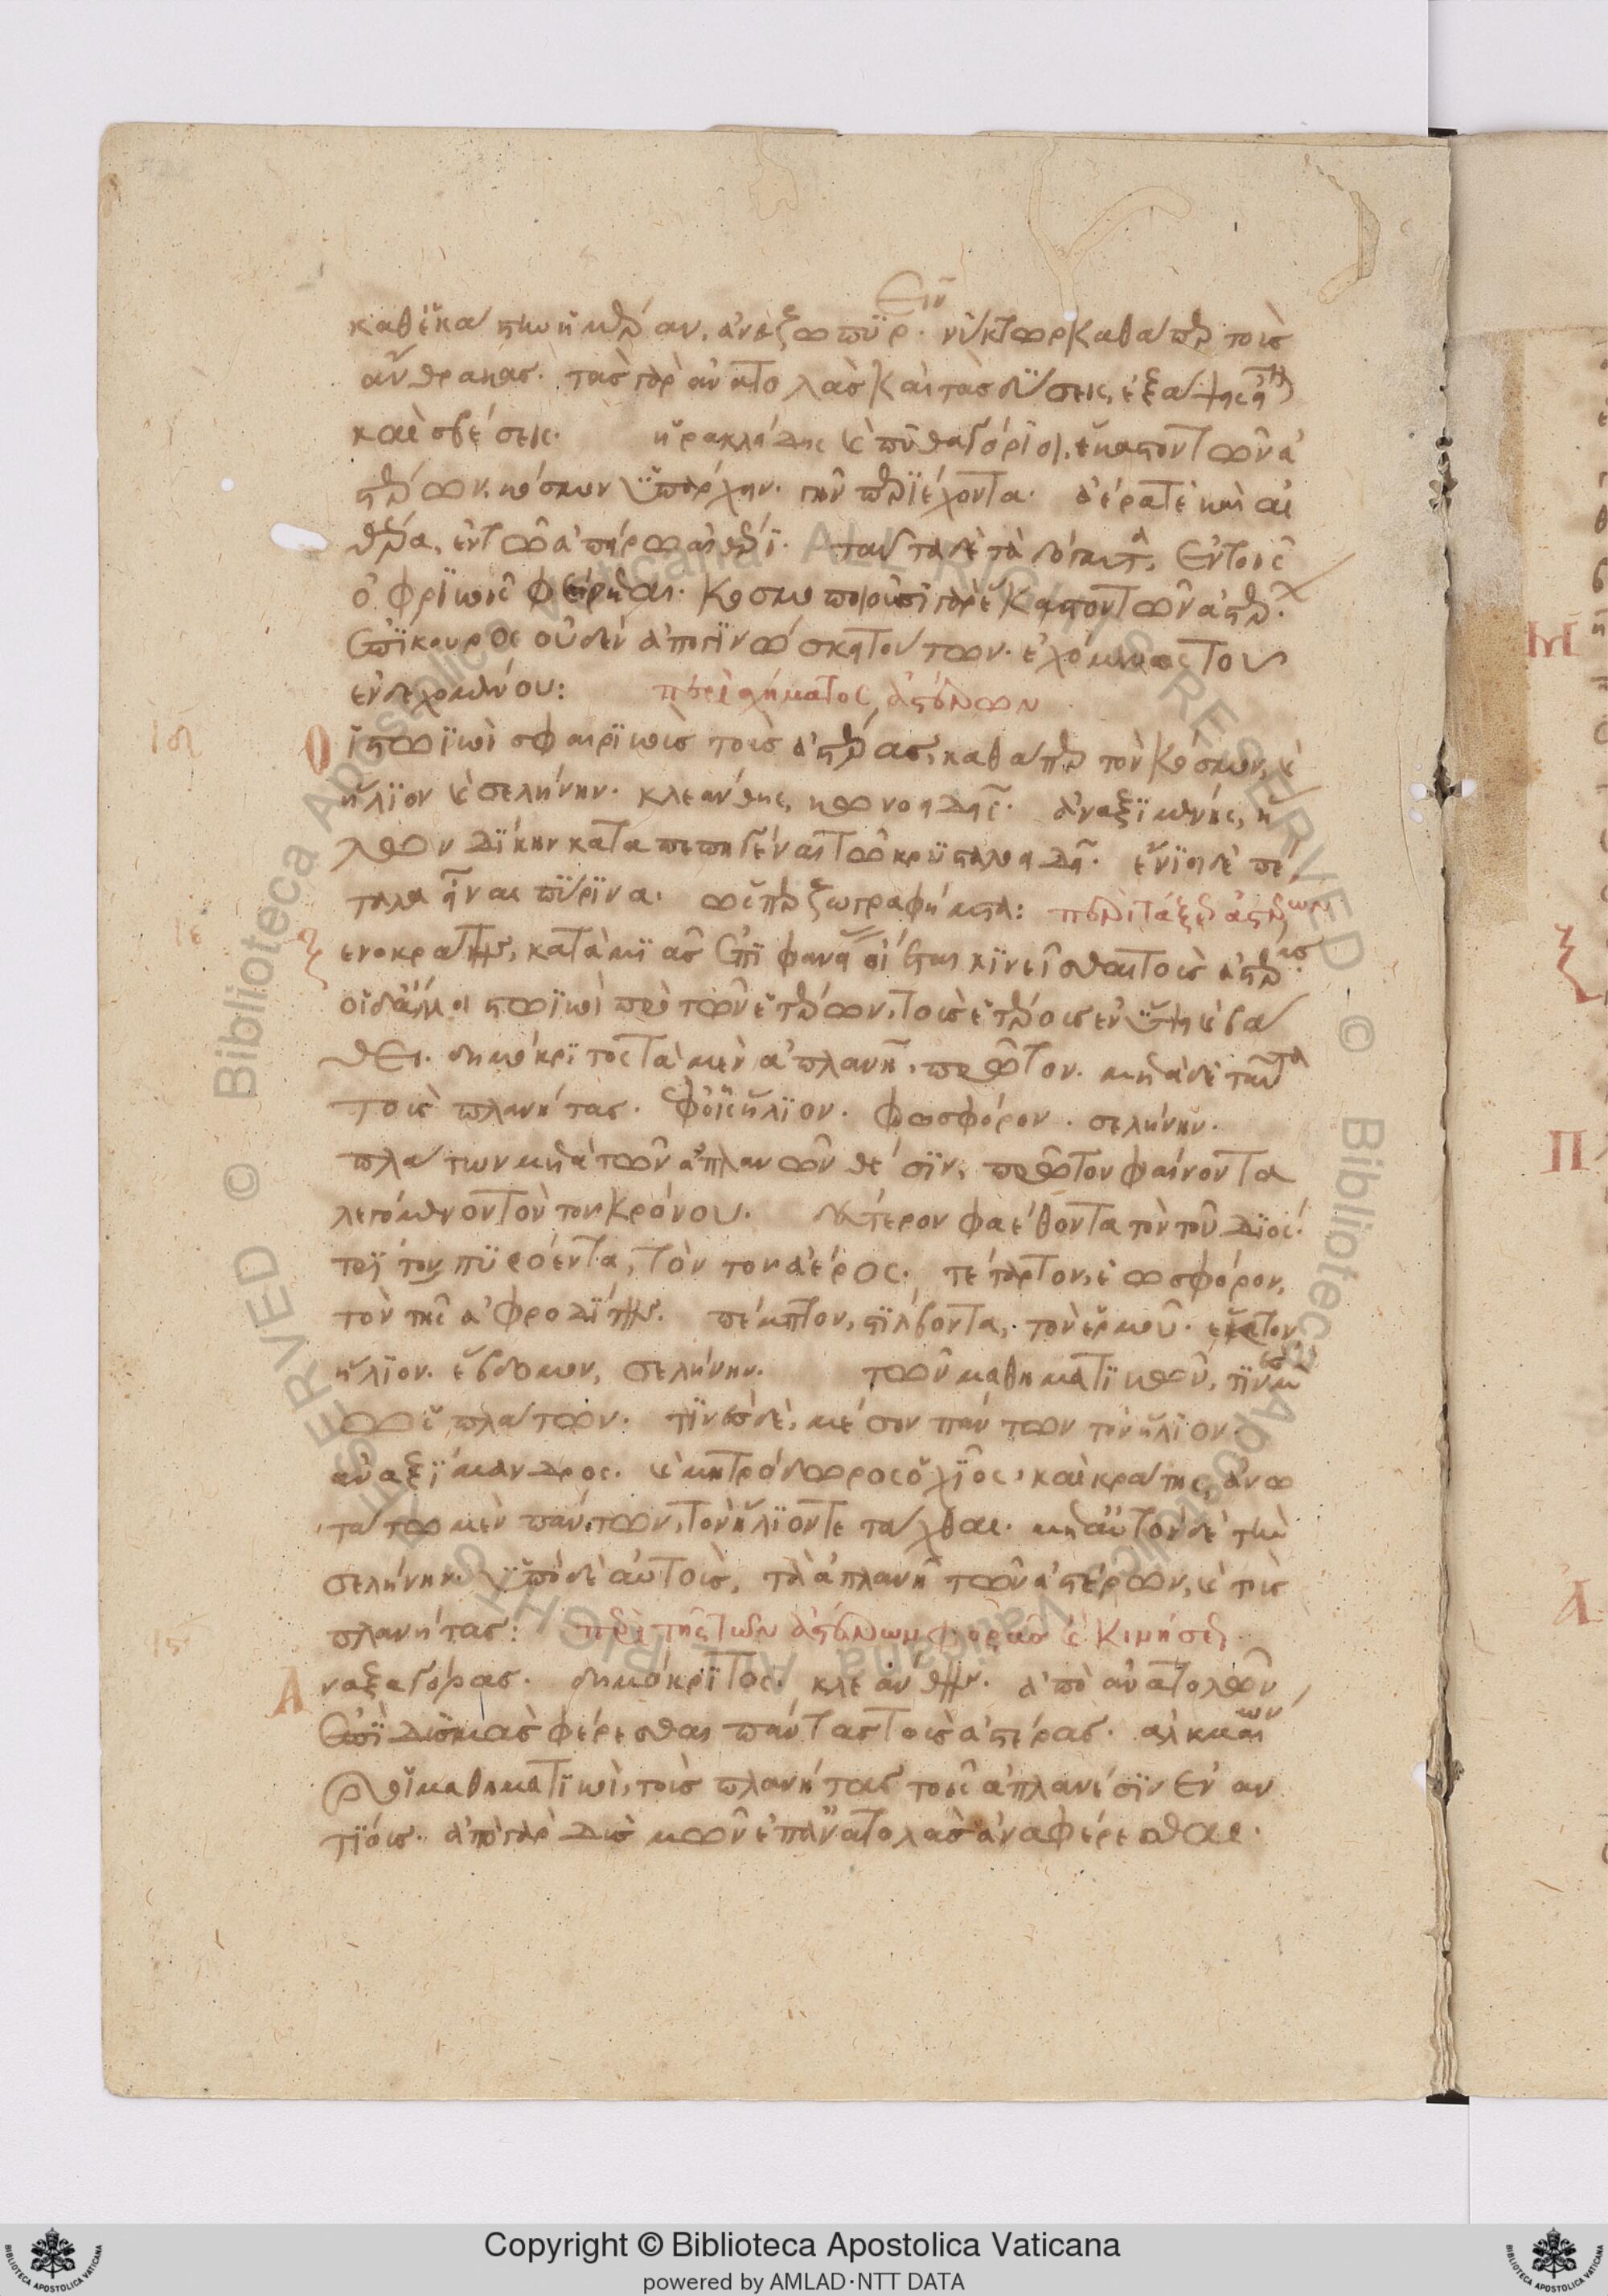 καθ' ἑκάστην ἡμέραν, ἀναζωπυρεῖν νύκτωρ καθάπερ τοὺς
ἄνθρακας· τὰς γὰρ ἀνατολὰς καὶ τὰς δύσεις, ἐξάψεις εἶναι
καὶ σβέσεις· ἡρακλείδης καὶ πυθαγόρειοι, ἕκαστον τῶν ἀ
στέρων, κόσμον ὑπάρχειν· γῆν περιέχοντα· ἀέρα τὲ καὶ αἰ
θέρα, ἐν τῶ ἀπείρω αἰθέρι· ταῦτα δὲ τὰ δόγματα, ἐν τοῖς
ὀρφικοῖς φέρεται· κοσμοποιοῦσι γὰρ ἕκαστον τῶν ἀστέρων
ἐπίκουρος οὐδὲν ἀπογινώσκει τούτων· ἐχόμενος τοῦ
ἐνδεχομένου:
περὶ σχήματος ἀστέρων
ιδ
Οἱ στωϊκοὶ σφαιρικοὺς τοὺς ἀστέρας, καθάπερ τὸν κόσμον, καὶ
ἥλιον καὶ σελήνην· κλεάνθης, κωνοειδεῖς· ἀναξιμένης, ἥ
λων δίκην καταπεπηγέναι τῶ κρυσταλλοειδεῖ· ἔνιοι δὲ πέ
ταλα εἶναι πύρινα· ὥσπερ ζωγραφήματα:
περὶ τάξεως ἀστέρων
ιε
Ξενοκράτης, κατὰ μιᾶς ἐπιφανείας οἴεται κινεῖσθαι τοὺς ἀστέρας
οἱ δ' ἄλλοι στωϊκοὶ πρὸ τῶν ἑτέρων, τοὺς ἑτέρους ἐν ὕψει καὶ βά
θει· δημόκριτος τὰ μὲν ἀπλανῆ, πρῶτον· μετὰ δὲ ταῦτα
τοὺς πλανήτας· ἐφ' οἷς ἥλιον· φωσφόρον· σελήνην·
πλάτων μετὰ τῶν ἀπλανῶν θέσιν, πρῶτον φαίνοντα
λεγόμενον τὸν τοῦ κρόνου· δεύτερον φαέθοντα τὸν τοῦ διός·
τρίτον πυρόεντα, τὸν τοῦ ἄερος· τέταρτον, ἑωσφόρον,
τὸν τῆς ἀφροδίτης· πέμπτον, στίλβοντα, τὸν ἑρμοῦ· ἕκτον
ἥλιον· ἕβδομον, σελήνην· τῶν μαθηματικῶν, τινὲς μὲν
ὡς πλάτων· τινὲς δὲ, μέσον πάντων τὸν ἥλιον·
ἀναξίμανδρος· καὶ μητρόδωρος ὁ χῖος, καὶ κράτης, ἀνω
τάτω μὲν πάντων, τὸν ἥλιον τετάχθαι· μετ' αὐτὸν δὲ τὴν
σελήνην· ὑπὸ δὲ αὐτοὺς, τὰ ἀπλανῆ τῶν ἀστέρων, καὶ τοὺς
πλανήτας:
περὶ τῆς τῶν ἀστέρων φορᾶς καὶ κινήσεως
ιϛ
Ἀναξαγόρας· δημόκριτος· κλεάνθης· ἀπὸ ἀνατολῶν
ἐπὶ δυσμὰς φέρεσθαι πάντας τοὺς ἀστέρας· ἀλκμαίων
καὶ οἱ μαθηματικοὶ, τοὺς πλανήτας τοῖς ἀπλανέσιν ἐναν
τίους· ἀπὸ γὰρ δυσμῶν ἐπ' ἀνατολὰς ἀναφέρεσθαι·
Copyright © Biblioteca Apostolica Vaticana
powered by AMLAD·NTT DATA